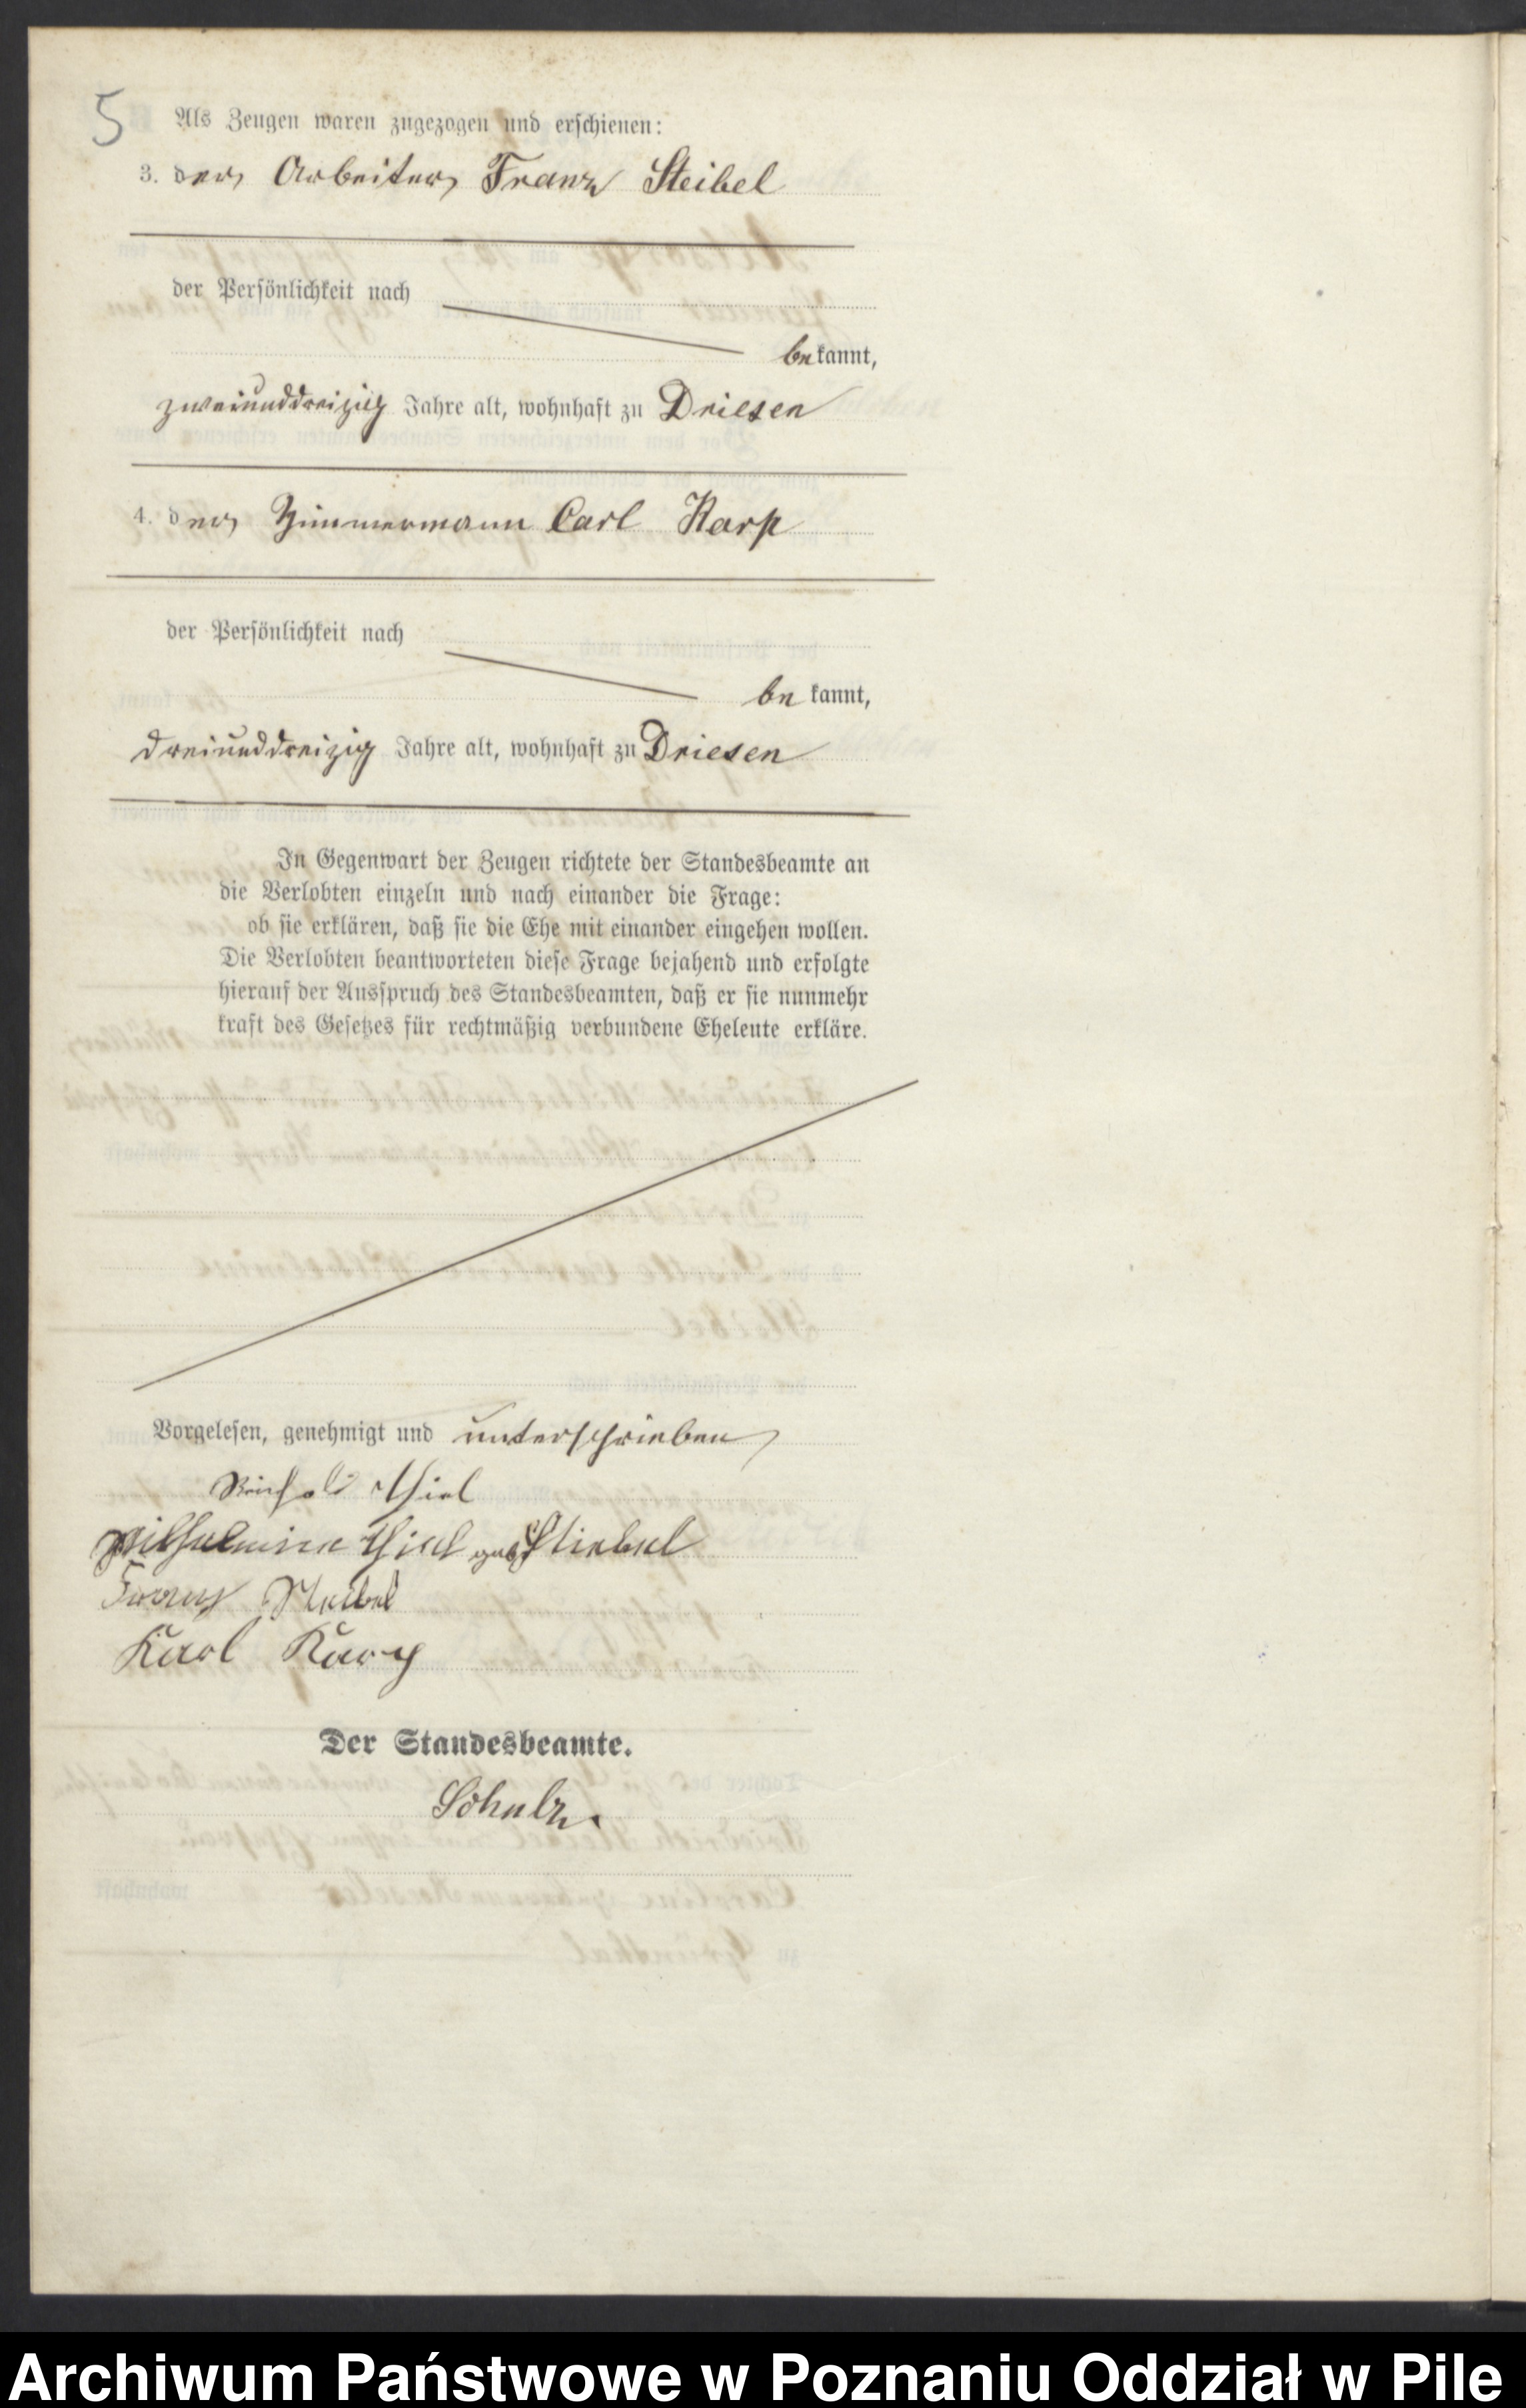 5 Als Zeugen waren zugezogen und erschienen:
3. der Arbeiter Franz Steibel
der Persönlichkeit nach
bekannt,
zweiunddreizig Jahre alt, wohnhaft zu Driesen
4. der Zimmermann Carl Karp
der Persönlichkeit nach
be kannt,
dreiunddreizig Jahre alt, wohnhaft zu Driesen
In Gegenwart der Zeugen richtete der Standesbeamte an
die Verlobten einzeln und nach einander die Frage:
ob sie erklären, daß sie die Ehe mit einander eingehen wollen.
Die Verlobten beantworteten diese Frage bejahend und erfolgte
hierauf der Ausspruch des Standesbeamten, daß er sie nunmehr
kraft des Gesetzes für rechtmäßig verbundene Eheleute erkläre.
Vorgelesen, genehmigt und unterschrieben
Reinhold Thiel
Wilhelmine Thiel geb Stiebel
Franz Steibel
Karl Karp
Der Standesbeamte.
Schulz.
Archiwum Państwowe w Poznaniu Oddział w Pile